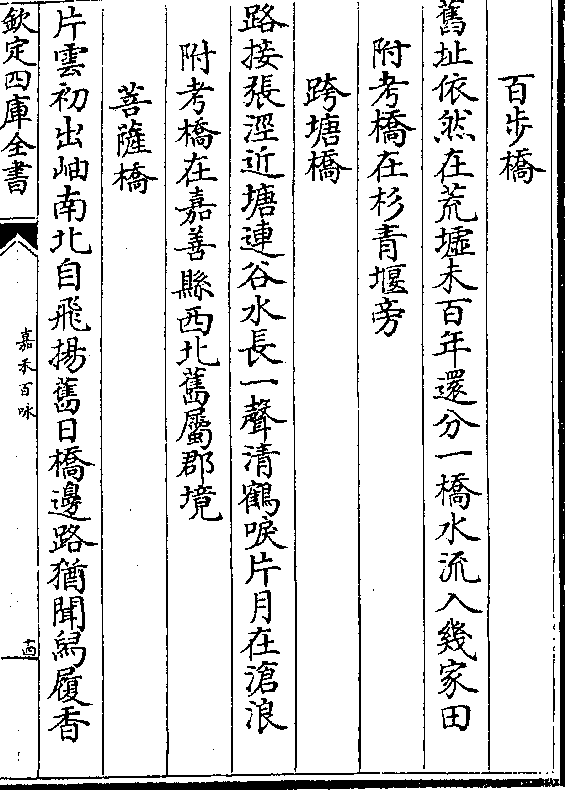 百步橋
舊址依然在荒墟未百年還分一橋水流入幾家田
附考橋在杉青堰旁
跨塘橋
路接張涇近塘連谷水長一聲清鶴唳片月在滄浪
附考橋在嘉善縣西北舊屬郡境
菩薩橋
片雲初出岫南北自飛揚舊日橋邊路猶聞舄履香
欽定四庫全書
嘉禾百咏